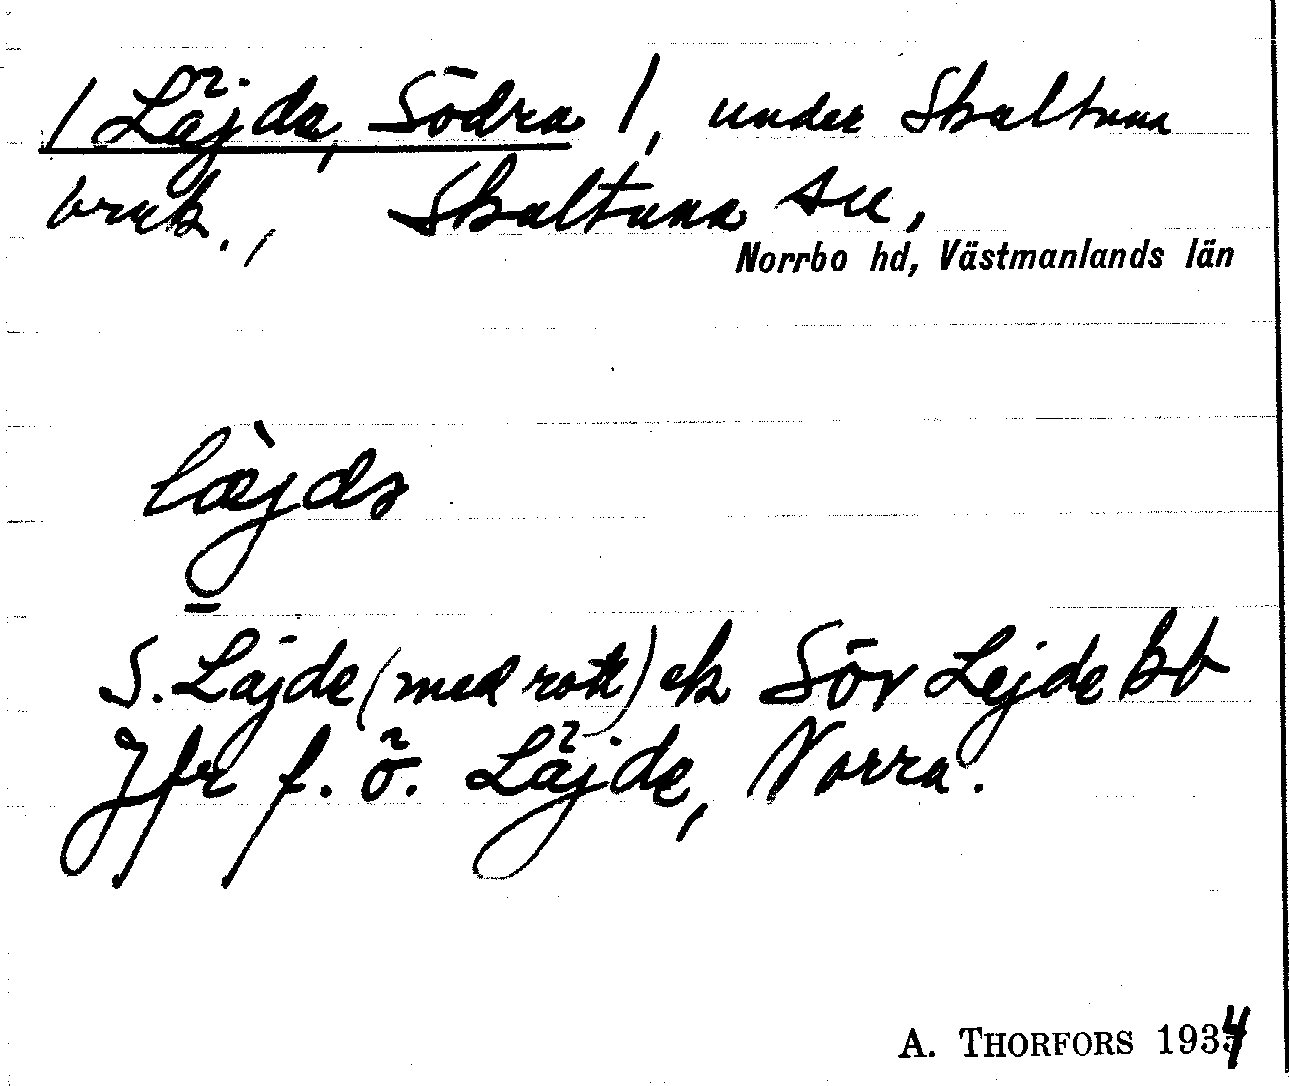 / Läjda, Södra /, under Skultuna
bruk., Skultuna sn,
Norrbo hd, Västmanlands län
læ̀jdɑ
S. Läjde (med rött) ek Sör Lejde bb
Jfr f. ö. Läjde, Norra.
A. THORFORS 1934